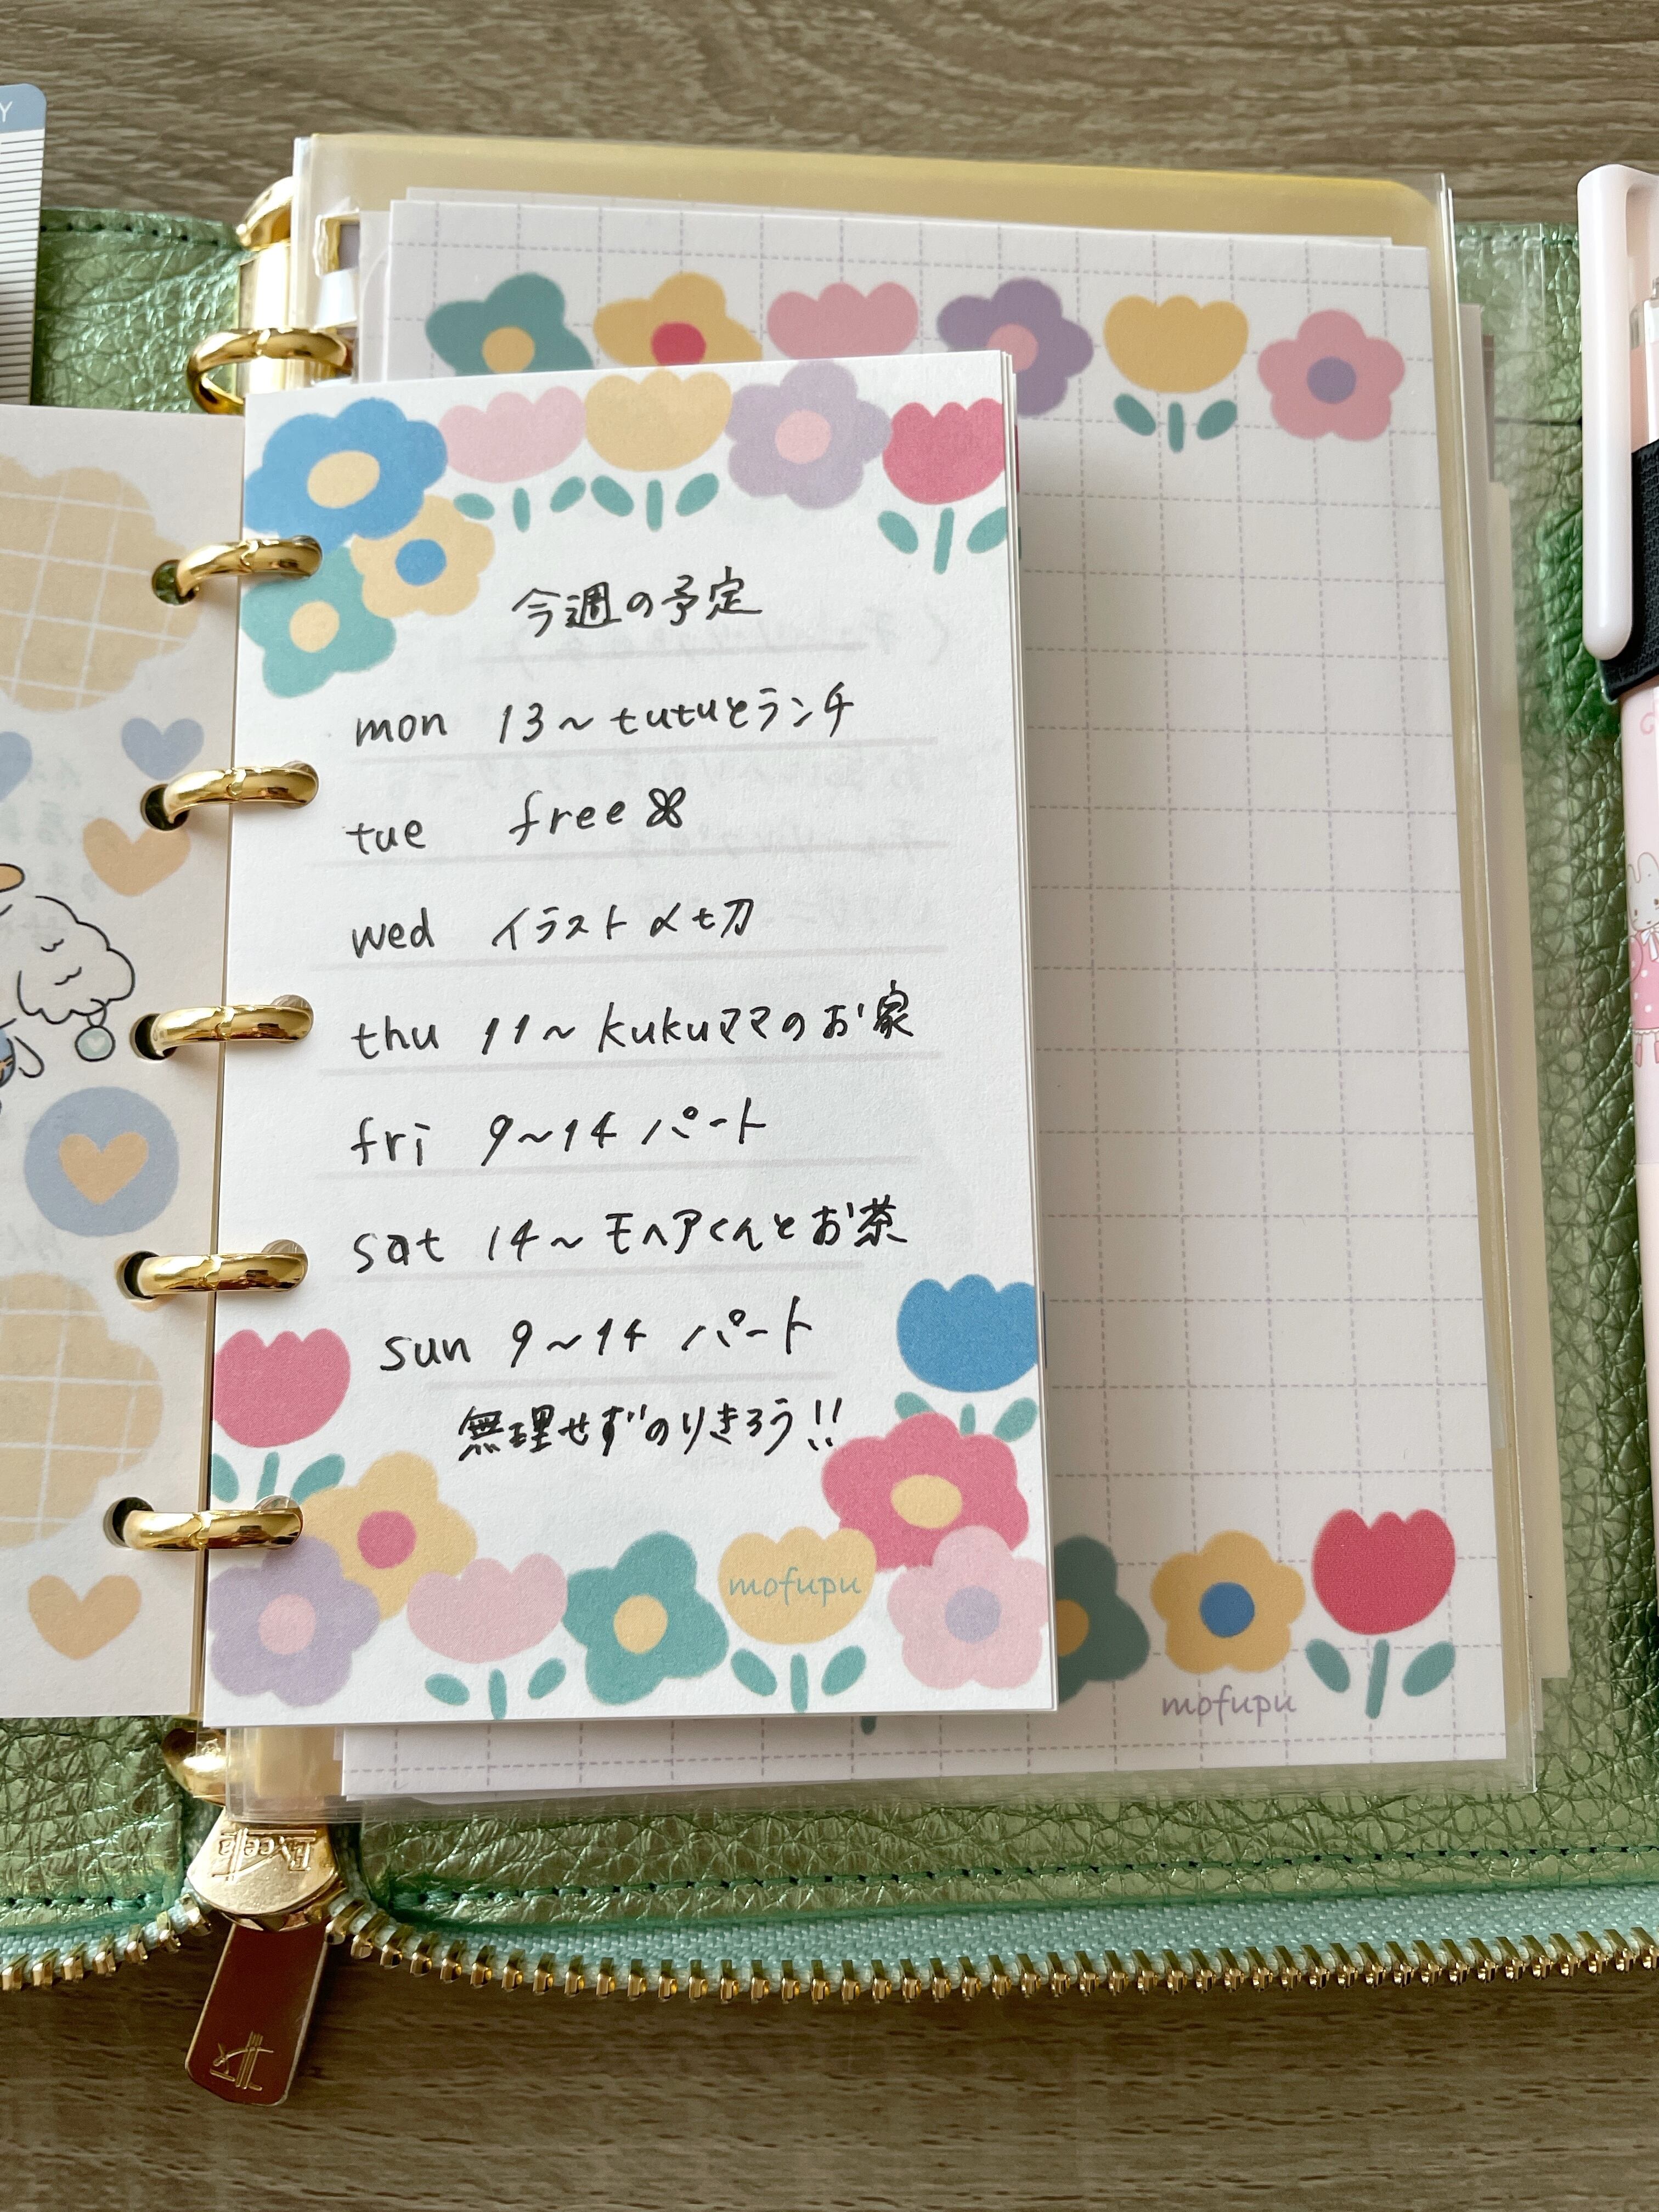 Y
今週の予定
mon 13～tutuとランチ
tue free
wed イラスト〆切
thu 11～kukuママのお家
fri 9～14 パート
sat 14～モヘアくんとお茶
sun 9～14 パート
無理せずのりきろう!!
mofupu
mofupu
Excella